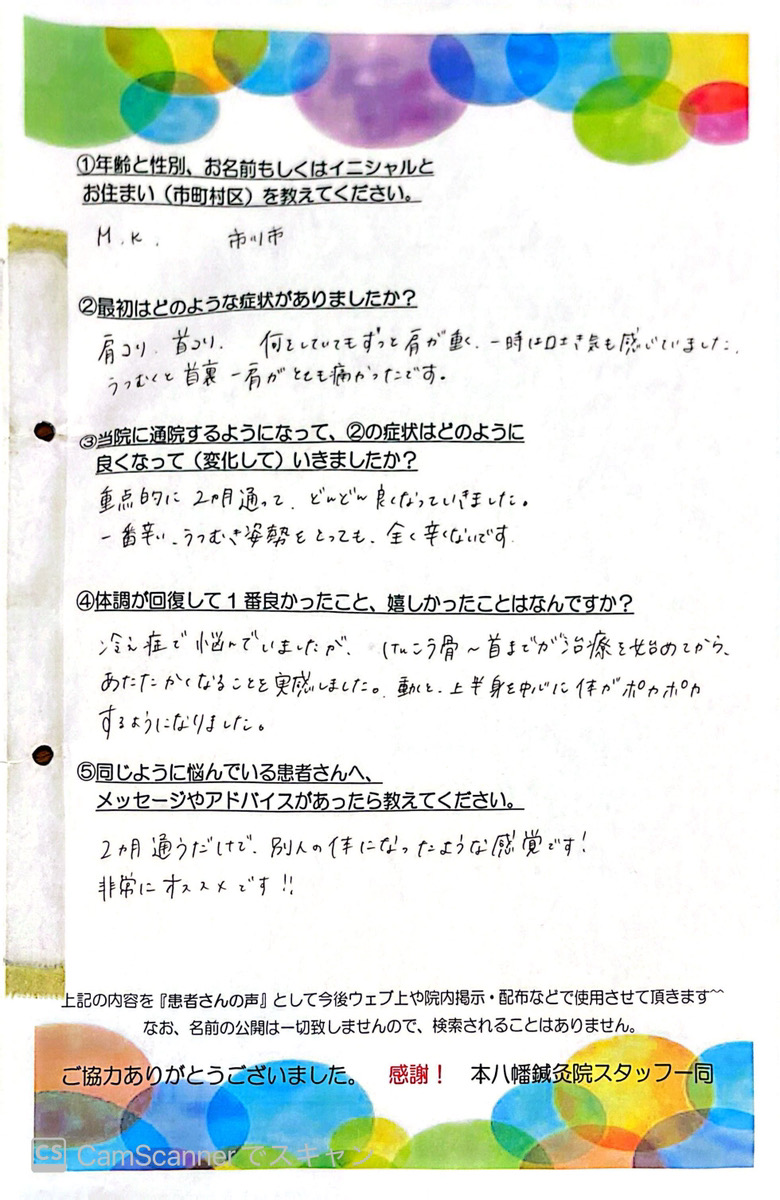 ①年齢と性別、お名前もしくはイニシャルと
お住まい（市町村区）を教えてください。
M.K. 市川市
②最初はどのような症状がありましたか？
肩コリ、首コリ、 何をしていてもずっと肩が重く、一時は吐き気も感じていました。
うつむくと首裏-肩がとても痛かったです。
③当院に通院するようになって、②の症状はどのように
良くなって（変化して）いきましたか？
重点的に2ヵ月通って、どんどん良くなっていきました。
一番辛い、うつむき姿勢をとっても、全く辛くないです.
④体調が回復して1番良かったこと、嬉しかったことはなんですか？
冷え症で悩んでいましたが、けんこう骨〜首までが治療を始めてから、
あたたかくなることを実感しました。動くと、上半身を中心に体がポカポカ
するようになりました。
⑤同じように悩んでいる患者さんへ、
メッセージやアドバイスがあったら教えてください。
2ヵ月通うだけで、別人の体になったような感覚です!
非常にオススメです!!
上記の内容を『患者さんの声』として今後ウェブ上や院内掲示・配布などで使用させて頂きます^^
なお、名前の公開は一切致しませんので、検索されることはありません。
ご協力ありがとうございました。 感謝！ 本八幡鍼灸院スタッフ一同
CS CamScannerでスキャン